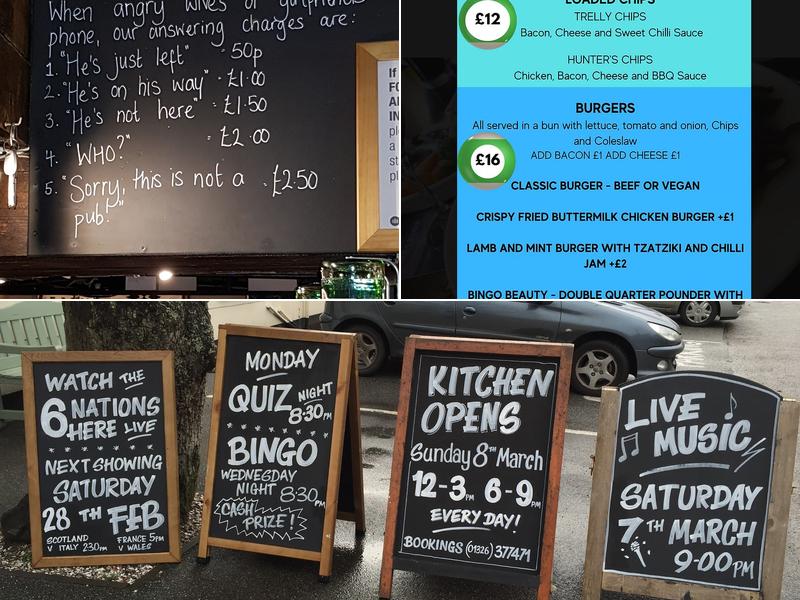 When angry wives or girlfriends
phone, our answering charges are:
1. "He's just left" - 50p
2. "He's on his way" - £1.00
3. "He's not here" - £1.50
4. "WHO?" = £2.00
5. "Sorry, this is not a - £2.50
pub!"
If
FO
IN
LOADED CHIPS
£12
TRELLY CHIPS
Bacon, Cheese and Sweet Chilli Sauce
HUNTER'S CHIPS
Chicken, Bacon, Cheese and BBQ Sauce
BURGERS
All served in a bun with lettuce, tomato and onion, Chips
and Coleslaw
£16
ADD BACON £1 ADD CHEESE £1
CLASSIC BURGER - BEEF OR VEGAN
CRISPY FRIED BUTTERMILK CHICKEN BURGER +£1
LAMB AND MINT BURGER WITH TZATZIKI AND CHILLI
JAM +£2
BINGO BEAUTY - DOUBLE QUARTER POUNDER WITH
WATCH THE
6 NATIONS
HERE LIVE
NEXT SHOWING
SATURDAY
28TH FEB
SCOTLAND
V ITALY 2.30PM
FRANCE 5PM
V WALES
MONDAY
QUIZ NIGHT
8:30PM
BINGO
WEDNESDAY
NIGHT 8:30PM
CASH
PRIZE!
KITCHEN
OPENS
Sunday 8TH March
12-3PM 6-9PM
EVERY DAY!
BOOKINGS (01326) 377471
LIVE
MUSIC
SATURDAY
7TH MARCH
9-00PM